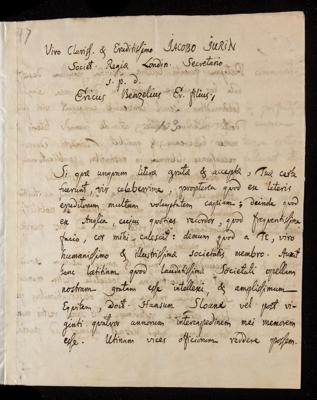 Viro Clariss. & Eruditissimo JACOBO JURIN
Societ. Regiæ Londin. Secretario
s. p. d.
Ericus Benzelius Er. filius,
Si quæ unquam literæ gratæ & acceptæ, Tuæ certe
fuerunt, vir celeberrime, propterea quod ex literis
eruditorum multam voluptatem capiam; deinde quod
ex Anglia cujus quoties recordor, quod frequentissime
facio, cor mihi calescat: demum quod a Te, viro
humanissimo & illustrissimæ societatis membro. Auxit
hanc lætitiam, quod laudatissimæ Societati
nostram gratam esse intellexi, & amplissimum
Equitem, Dom. Hansum Sloane vel post vi-
ginti quatuor annorum intercapedinem mei memorem
esse. Utinam vices officiorum reddere possem.